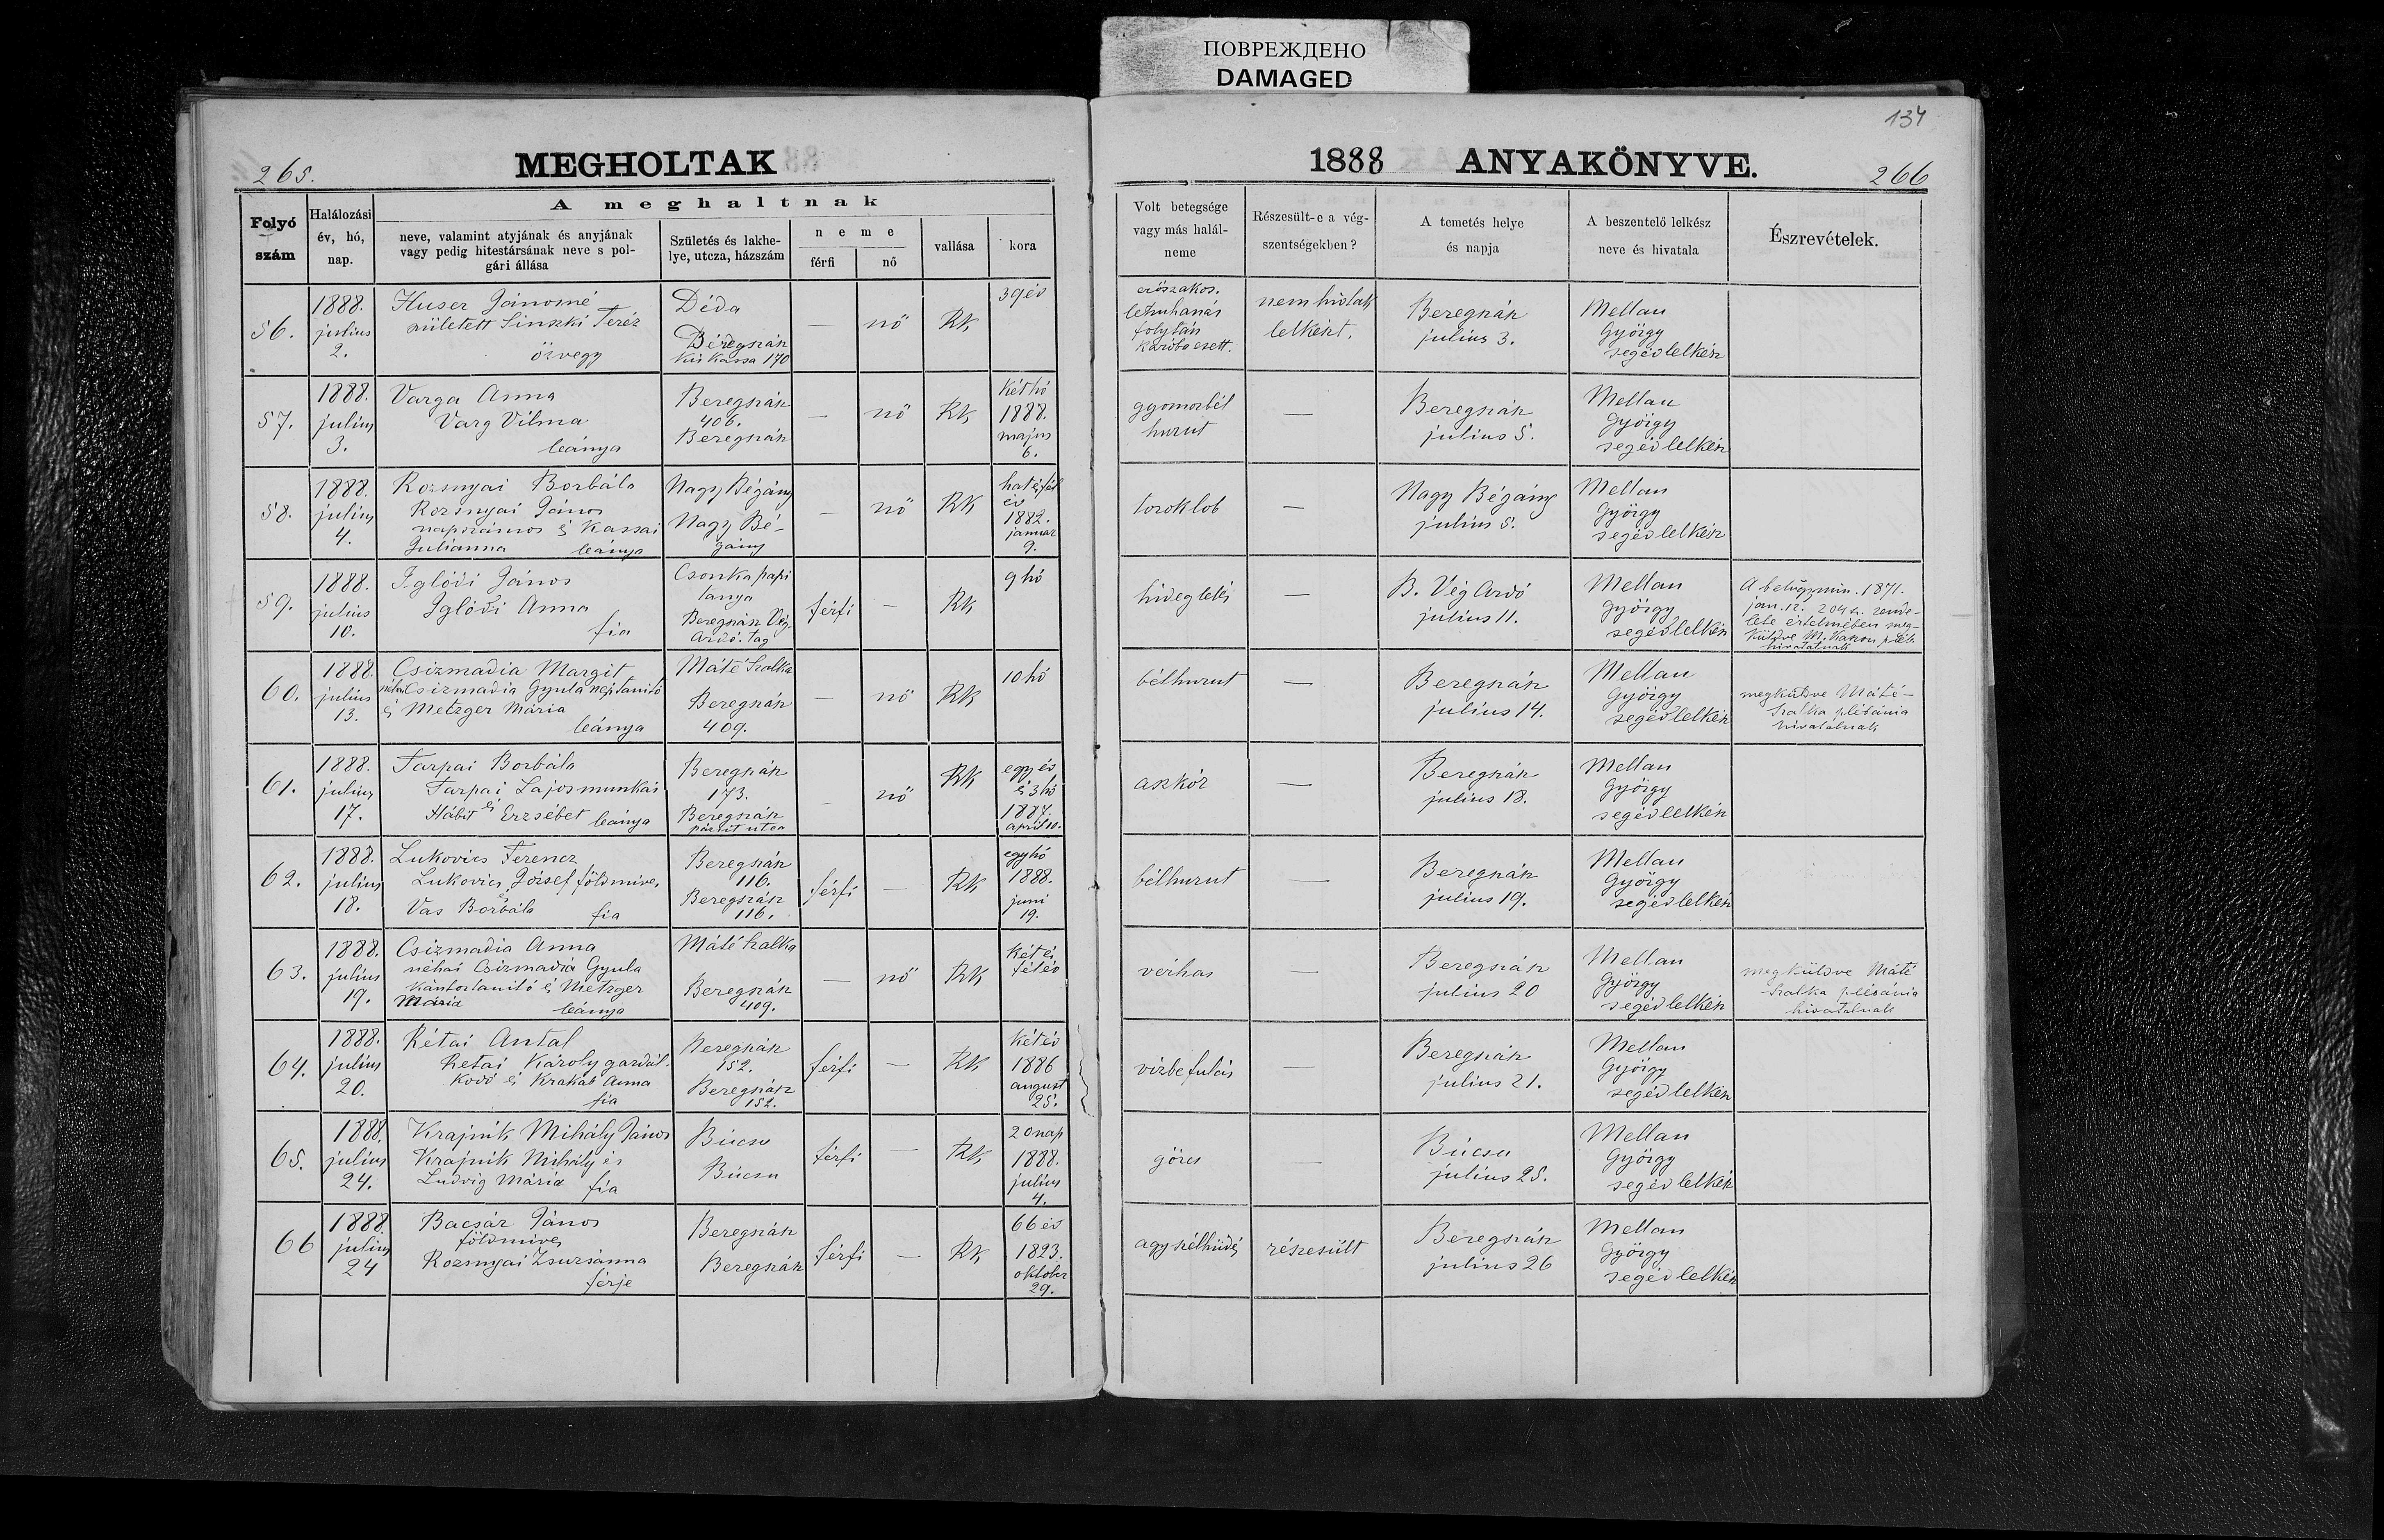 ПОВРЕЖДЕНО
DAMAGED
134
265.
MEGHOLTAK
1888 ANYAKÖNYVE.
266
Folyó szám
Halálozási év, hó, nap.
A meghaltnak
neve, valamint atyjának és anyjának vagy pedig hitestársának neve s polgári állása
Születés és lakhelye, utcza, házszám
neme
férfi
nő
vallása
kora
Volt betegsége vagy más halálneme
Részesült-e a végszentségekben?
A temetés helye és napja
A beszentelő lelkész neve és hivatala
Észrevételek.
56.
1888.
julius
2.
Huser Jánosné
született Sinszki Teréz
özvegy
Déda
Beregszász
Kis Kassa 170
—
nő
RK
39 év
erőszakos.
folytán
nem hivtak
lelkészt.
Beregszász
julius 3.
Mellau
György
segédlelkész
57.
1888.
julius
3.
Varga Anna
Varg Vilma
leánya
Beregszász
406.
Beregszász
—
nő
RK
két hó
1888.
majus
6.
gyomorbél
hurut
—
Beregszász
julius 5.
Mellau
György
segédlelkész
58.
1888.
julius
4.
Rozsnyai Borbála
Rozsnyai János
napszámos és Kassai
Julianna leánya
Nagy Bégány
Nagy Bé-
gány
—
nő
RK
hat és fél
év
1882.
január
9.
toroklob
—
Nagy Bégány
julius 5.
Mellau
György
segédlelkész
59.
1888.
julius
10.
Iglódi János
Iglódi Anna
fia
Csonkapapi
tanya
Beregszász Vég-
Ardó. tag
férfi
—
RK
9 hó
hideglelés
—
B. Vég Ardó
julius 11.
Mellau
György
segédlelkész
A belügymin. 1871.
jan. 12. 204 sz. rende-
lete értelmében meg-
küldve M. Kaszon pléb.
hivatalnak
60.
1888.
julius
13.
Csizmadia Margit
néhai Csizmadia Gyula néptanitó
és Metzger Mária
leánya
Máté Szalka
Beregszász
409.
—
nő
RK
10 hó
bélhurut
—
Beregszász
julius 14.
Mellau
György
segédlelkész
megküldve Máté-
Szalka plébánia
hivatalnak
61.
1888.
julius
17.
Tarpai Borbála
Tarpai Lajos munkás
és
Hábit Erzsébet leánya
Beregszász
173.
Beregszász
utca
—
nő
RK
egy év
és 3 hó
1887.
april 10.
aszkór
—
Beregszász
julius 18.
Mellau
György
segédlelkész
62.
1888.
julius
18.
Lukovics Ferencz
Lukovics József földmives
és
Vas Borbála fia
Beregszász
116.
Beregszász
116.
férfi
—
RK
egy hó
1888.
juni
19.
bélhurut
—
Beregszász
julius 19.
Mellau
György
segédlelkész
63.
1888.
julius
19.
Csizmadia Anna
néhai Csizmadia Gyula
kántortanitó és Metzger
Mária leánya
Máté Szalka
Beregszász
409.
—
nő
RK
két és
fél év
vérhas
—
Beregszász
julius 20
Mellau
György
segédlelkész
megküldve Máté
Szalka plébánia
hivatalnak
64.
1888.
julius
20.
Rétai Antal
Retai Károly gazdál-
kodó és Anna
fia
Beregszász
152.
Beregszász
152.
férfi
—
RK
két év
1886
august
25.
vizbefulás
—
Beregszász
julius 21.
Mellau
György
segédlelkész
65.
1888.
julius
24.
Krajnik Mihály János
Krajnik Mihály és
Ludvig Mária fia
Búcsu
Búcsu
férfi
—
RK
20 nap
1888.
julius
4.
görcs
—
Búcsu
julius 25.
Mellau
György
segédlelkész
66
1888.
julius
24
Bacsár János
földmives
Rozsnyai Zsuzsánna
férje
Beregszász
Beregszász
férfi
—
RK
66 év
1823.
oktober
29.
agyszélhüdés
részesült
Beregszász
julius 26
Mellau
György
segédlelkész